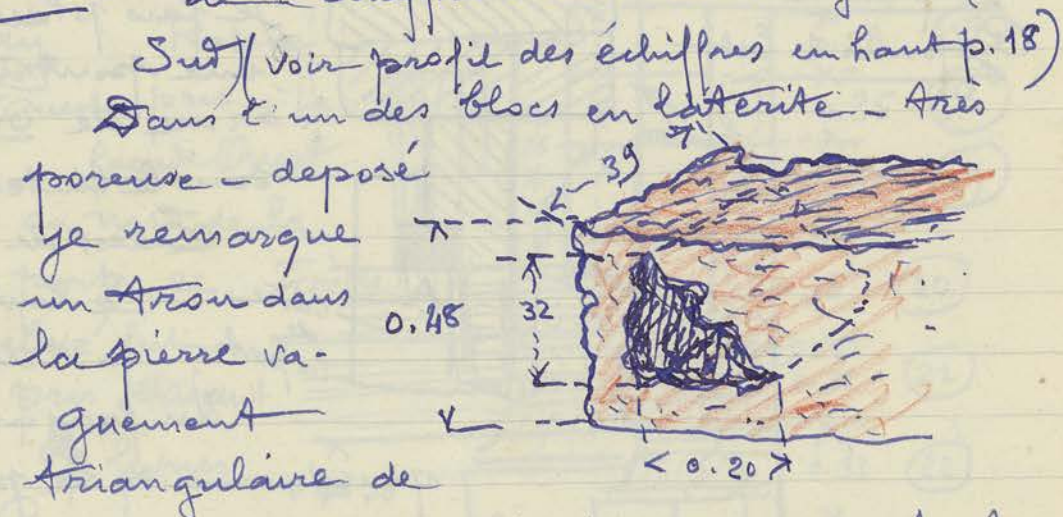 Sud (voir profil des échiffres en haut p. 18)
Dans l'un des blocs en latérite - très
poreuse - deposé
je remarque
un trou dans
la pierre va-
guement
triangulaire de
39
0.48
32
< 0.20 >